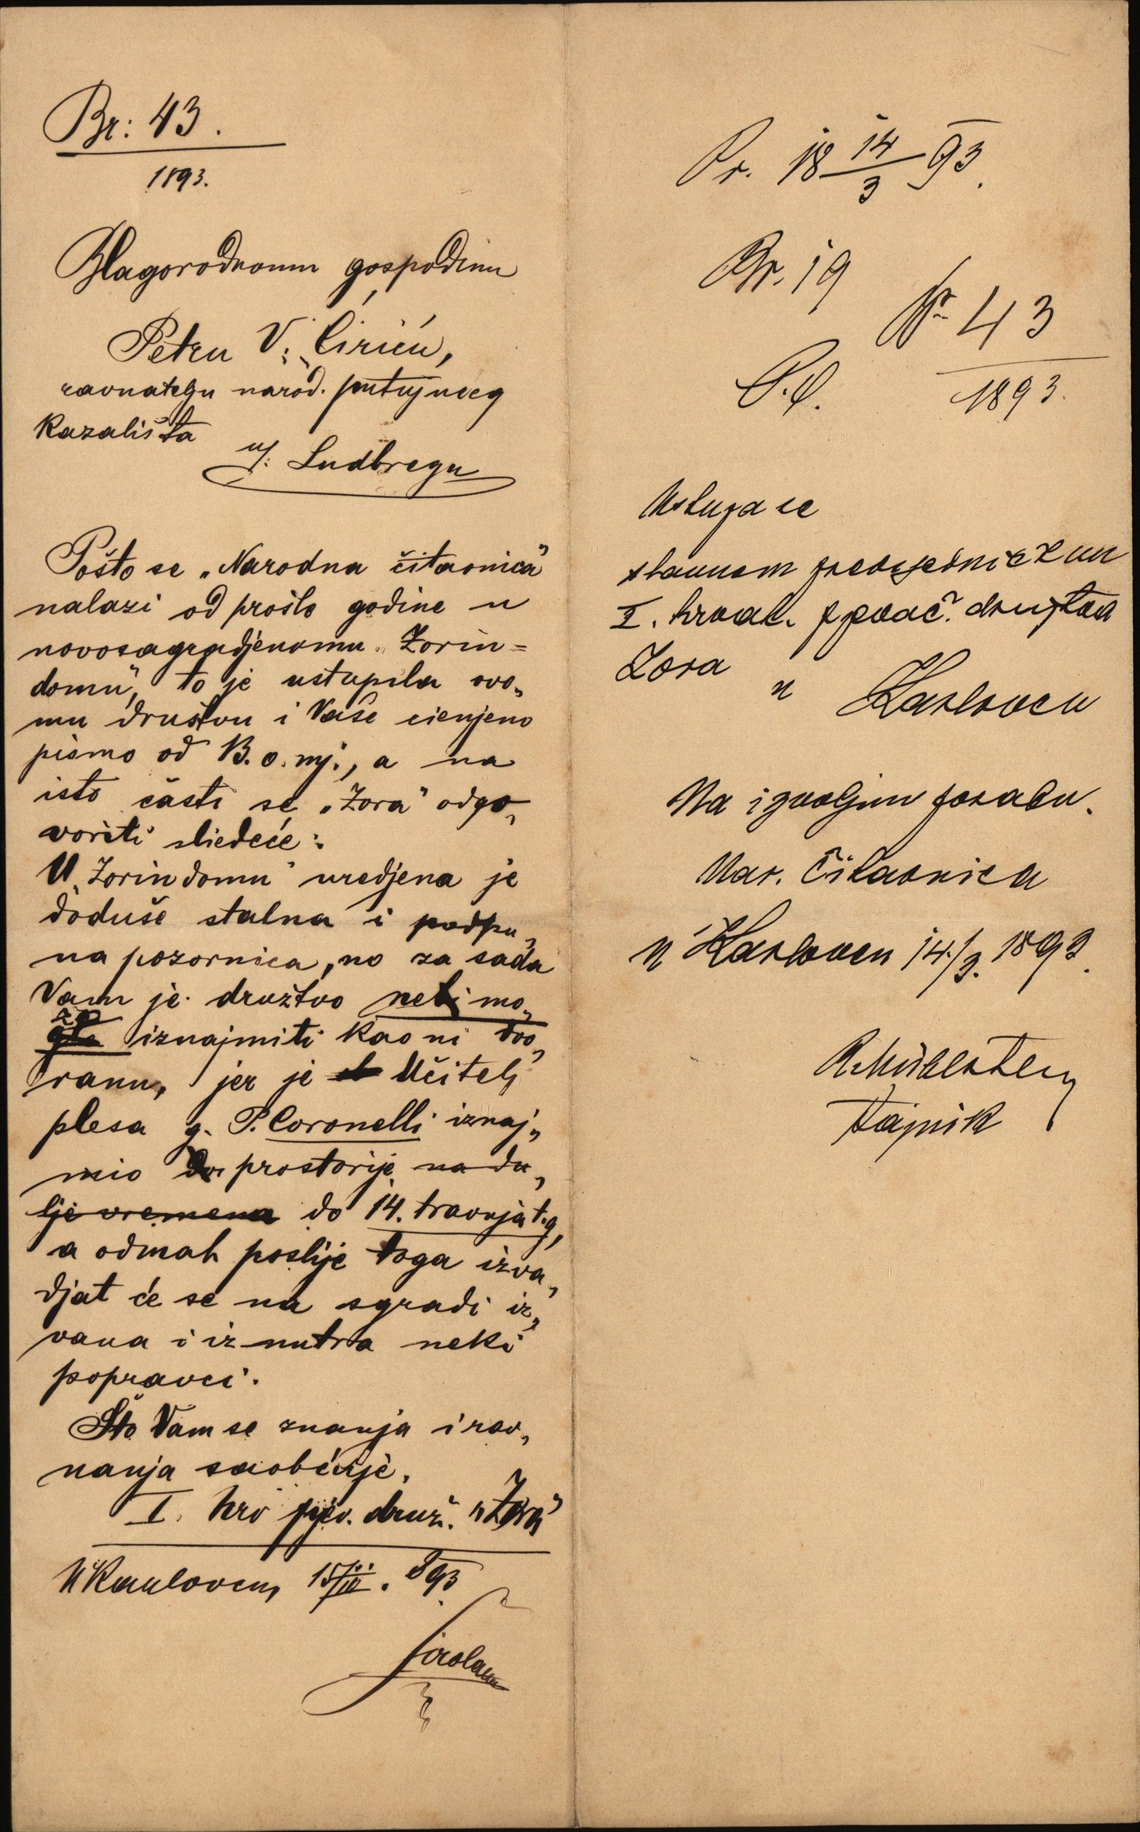 Br: 43.
1893.
Blagorodnomu gospodinu
Petru V. Ćiriću,
ravnatelju narod. putujućeg
Kazališta
u Ludbregu
Pošto se „Narodna čitaonica"
nalazi od prošle godine u
novosagradjenomu „Zorin=
domu", to je ustupila ovo„
mu družtvu i Vaše cienjeno
pismo od B. o. mj., a na
isto časti se „Zora" odgo„
voriti sliedeće:
U „Zorin domu" uredjena je
doduše stalna i podpu„
na pozornica, no za sada
Vam je družtvo nebi mo„
glo iznajmiti kao ni dvo„
ranu, jer je Učitelj
plesa g. P. Coronelli iznaj„
mio prostorije na du„
lje vremena do 14. travnja t.g,
a odmah poslije toga izva„
djat će se na sgradi iz„
vana i iz nutra neki
popravci.
Što Vam se znanja i rav„
nanja saobćuje.
I. hrv pjev. druž. „Zora"
U Karlovcu, 15/III. 893
Pr. 18 14/3 93.
Br. 19
Br 43
1893.
P.O.
Ustupa se
slavnom predsjedničtvu
I. hrvat. pjevač. družtva
Zora u Karlovcu
Na izvoljnu porabu.
Nar. Čitaonica
u Karlovcu 14./3. 1893.
R. Mühlstein
tajnik